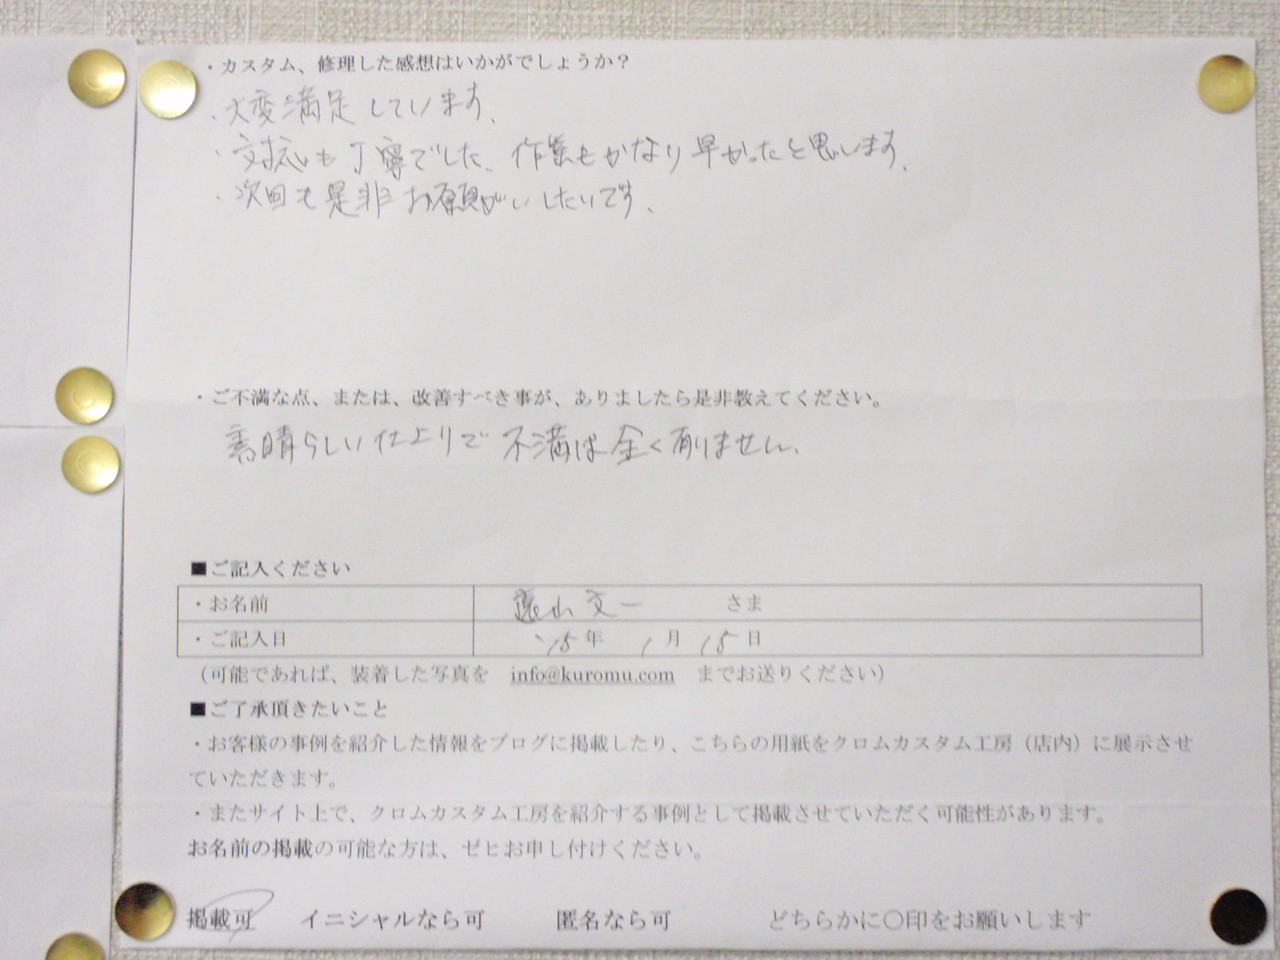 ・カスタム、修理した感想はいかがでしょうか？
・大変満足しています、
・対応も丁寧でした、作業もかなり早かったと思います、
・次回も是非お願がいしたいです、
・ご不満な点、または、改善すべき事が、ありましたら是非教えてください。
素晴らしい仕上りで不満は全く有りません、
■ご記入ください
・お名前 遠山文一 さま
・ご記入日 '15年 1月 15日
（可能であれば、装着した写真を info@kuromu.com までお送りください）
■ご了承頂きたいこと
・お客様の事例を紹介した情報をブログに掲載したり、こちらの用紙をクロムカスタム工房（店内）に展示させ
ていただきます。
・またサイト上で、クロムカスタム工房を紹介する事例として掲載させていただく可能性があります。
お名前の掲載の可能な方は、ゼヒお申し付けください。
掲載可 イニシャルなら可 匿名なら可 どちらかに〇印をお願いします